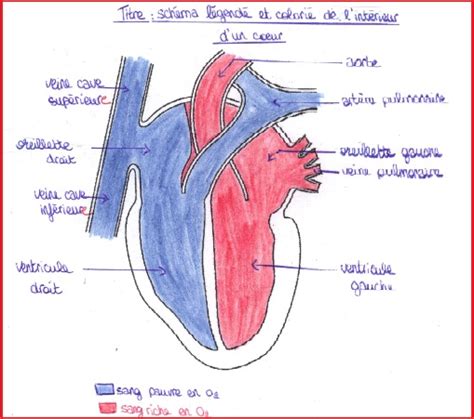 Titre : schéma légendé et colorié de l'intérieur
d'un coeur
aorte
veine cave
supérieure
artère pulmonaire
oreillette
droit
oreillette gauche
veine pulmonaire
veine cave
inférieure
ventricule
droit
ventricule
gauche
sang pauvre en O₂
sang riche en O₂